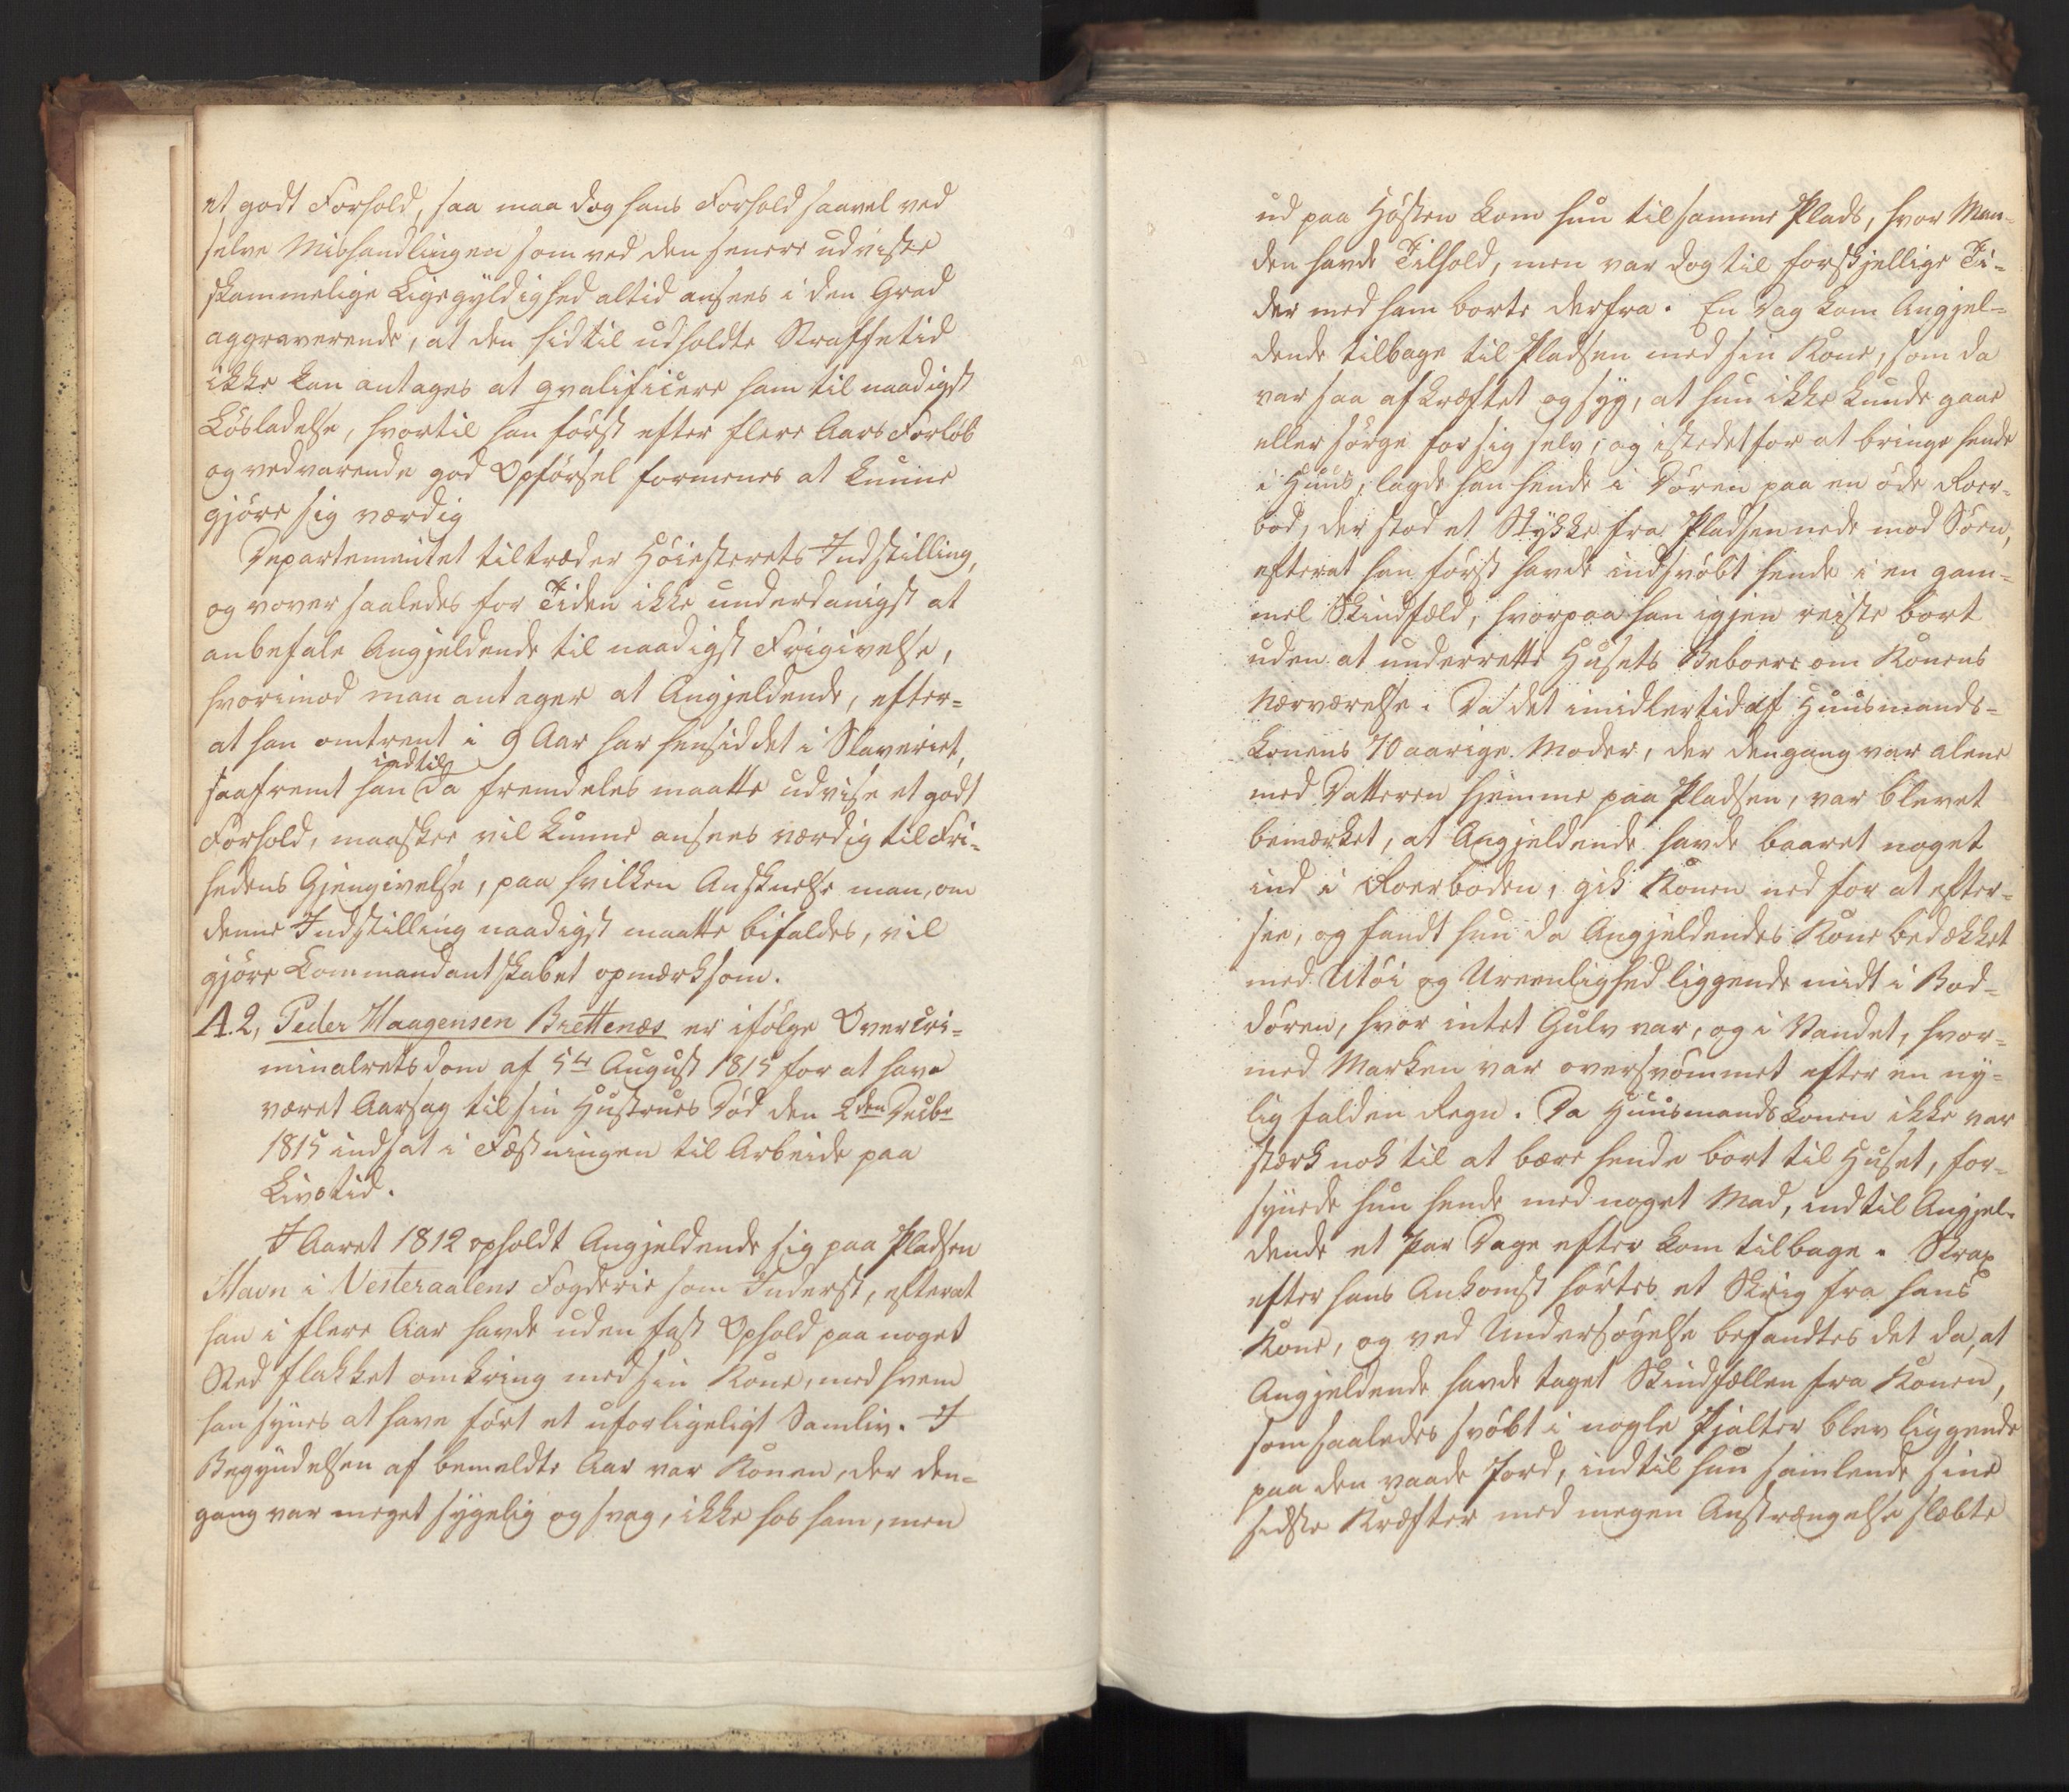 et godt Forhold, saa maa dog hans Forhold saavel ved
selve Mishandlingen som ved den senere udviste
skammelige Ligegyldighed altid ansees i den Grad
aggraverende, at den hidtil udholdte Straffetid
ikke kan antages at qvalificere ham til naadigst
Løsladelse, hvortil han først efter flere Aars Forløb
og vedvarende god Opførsel formenes at kunne
gjøre sig værdig
Departementet tiltræder Høiesterets Indstilling,
og vover saaledes for Tiden ikke underdanigst at
anbefale Angjeldende til naadigst Frigivelse,
hvorimod man antager at Angjeldende, efter=
at han omtrent i 9 Aar har hensiddet i Slaveriet,
saafremt han indtil da fremdeles maatte udvise et godt
Forhold, maaskee vil kunne ansees værdig til Fri=
hedens Gjengivelse, paa hvilken Anskuelse man, om
denne Indstilling naadigst maatte bifaldes, vil
gjøre Commandantskabet opmærksom.
A. 2, Peder Haagensen Brettenæs er ifølge Overcri=
minalretsdom af 5te August 1815 for at have
været Aarsag til sin Hustrues Død den 2den Decbr
1815 indsat i Fæstningen til Arbeide paa
Livstid.
I Aaret 1812 opholdt Angjeldende sig paa Pladsen
Havn i Vesteraalens Fogderie som Inderst, efterat
han i flere Aar havde uden fast Ophold paa noget
Sted flakket omkring med sin Kone, med hvem
han synes at have ført et uforligeligt Samliv. I
Begyndelsen af bemeldte Aar var Konen, der den=
gang var meget sygelig og svag, ikke hos ham, men
ud paa Høsten kom hun til samme Plads, hvor Man=
den havde Tilhold, men var dog til forskjellige Ti=
der med ham borte derfra. En Dag kom Angjel=
dende tilbage til Pladsen med sin Kone, som da
var saa afkræftet og syg, at hun ikke kunde gaae
eller sørge for sig selv, og istedetfor at bringe hende
i Huus, lagde han hende i Døren paa en øde Roer=
bod, der stod et Stykke fra Pladsen nede mod Søen,
efterat han først havde indsvøbt hende i en gam=
mel Skindfæld, hvorpaa han igjen reiste bort
uden at underrette Husets Beboere om Konens
Nærværelse. Da det imidlertid af Huusmands=
konens 70 aarige Moder, der dengang var alene
med Datteren hjemme paa Pladsen, var blevet
bemærket, at Angjeldende havde baaret noget
ind i Roerboden, gik Konen ned for at efter=
see, og fandt hun da Angjeldendes Kone bedækket
med Utøi og Ureenlighed liggende midt i Bod=
døren, hvor intet Gulv var, og i Vandet, hvor=
med Marken var oversvømmet efter en ny=
lig falden Regn. Da Huusmandskonen ikke var
stærk nok til at bære hende bort til Huset, for=
synede hun hende med noget Mad, indtil Angjel=
dende et Par Dage efter kom tilbage. Strax
efter hans Ankomst hørtes et Skrig fra hans
Kone, og ved Undersøgelse befandtes det da, at
Angjeldende havde taget Skindfællen fra Konen,
som saaledes svøbt i nogle Pjalter blev liggende
paa den vaade Jord, indtil hun samlende sine
sidste Kræfter med megen Anstrængelse slæbte